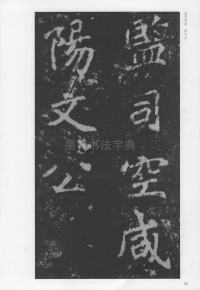 监司空咸
陽文公
墨趣书法字典